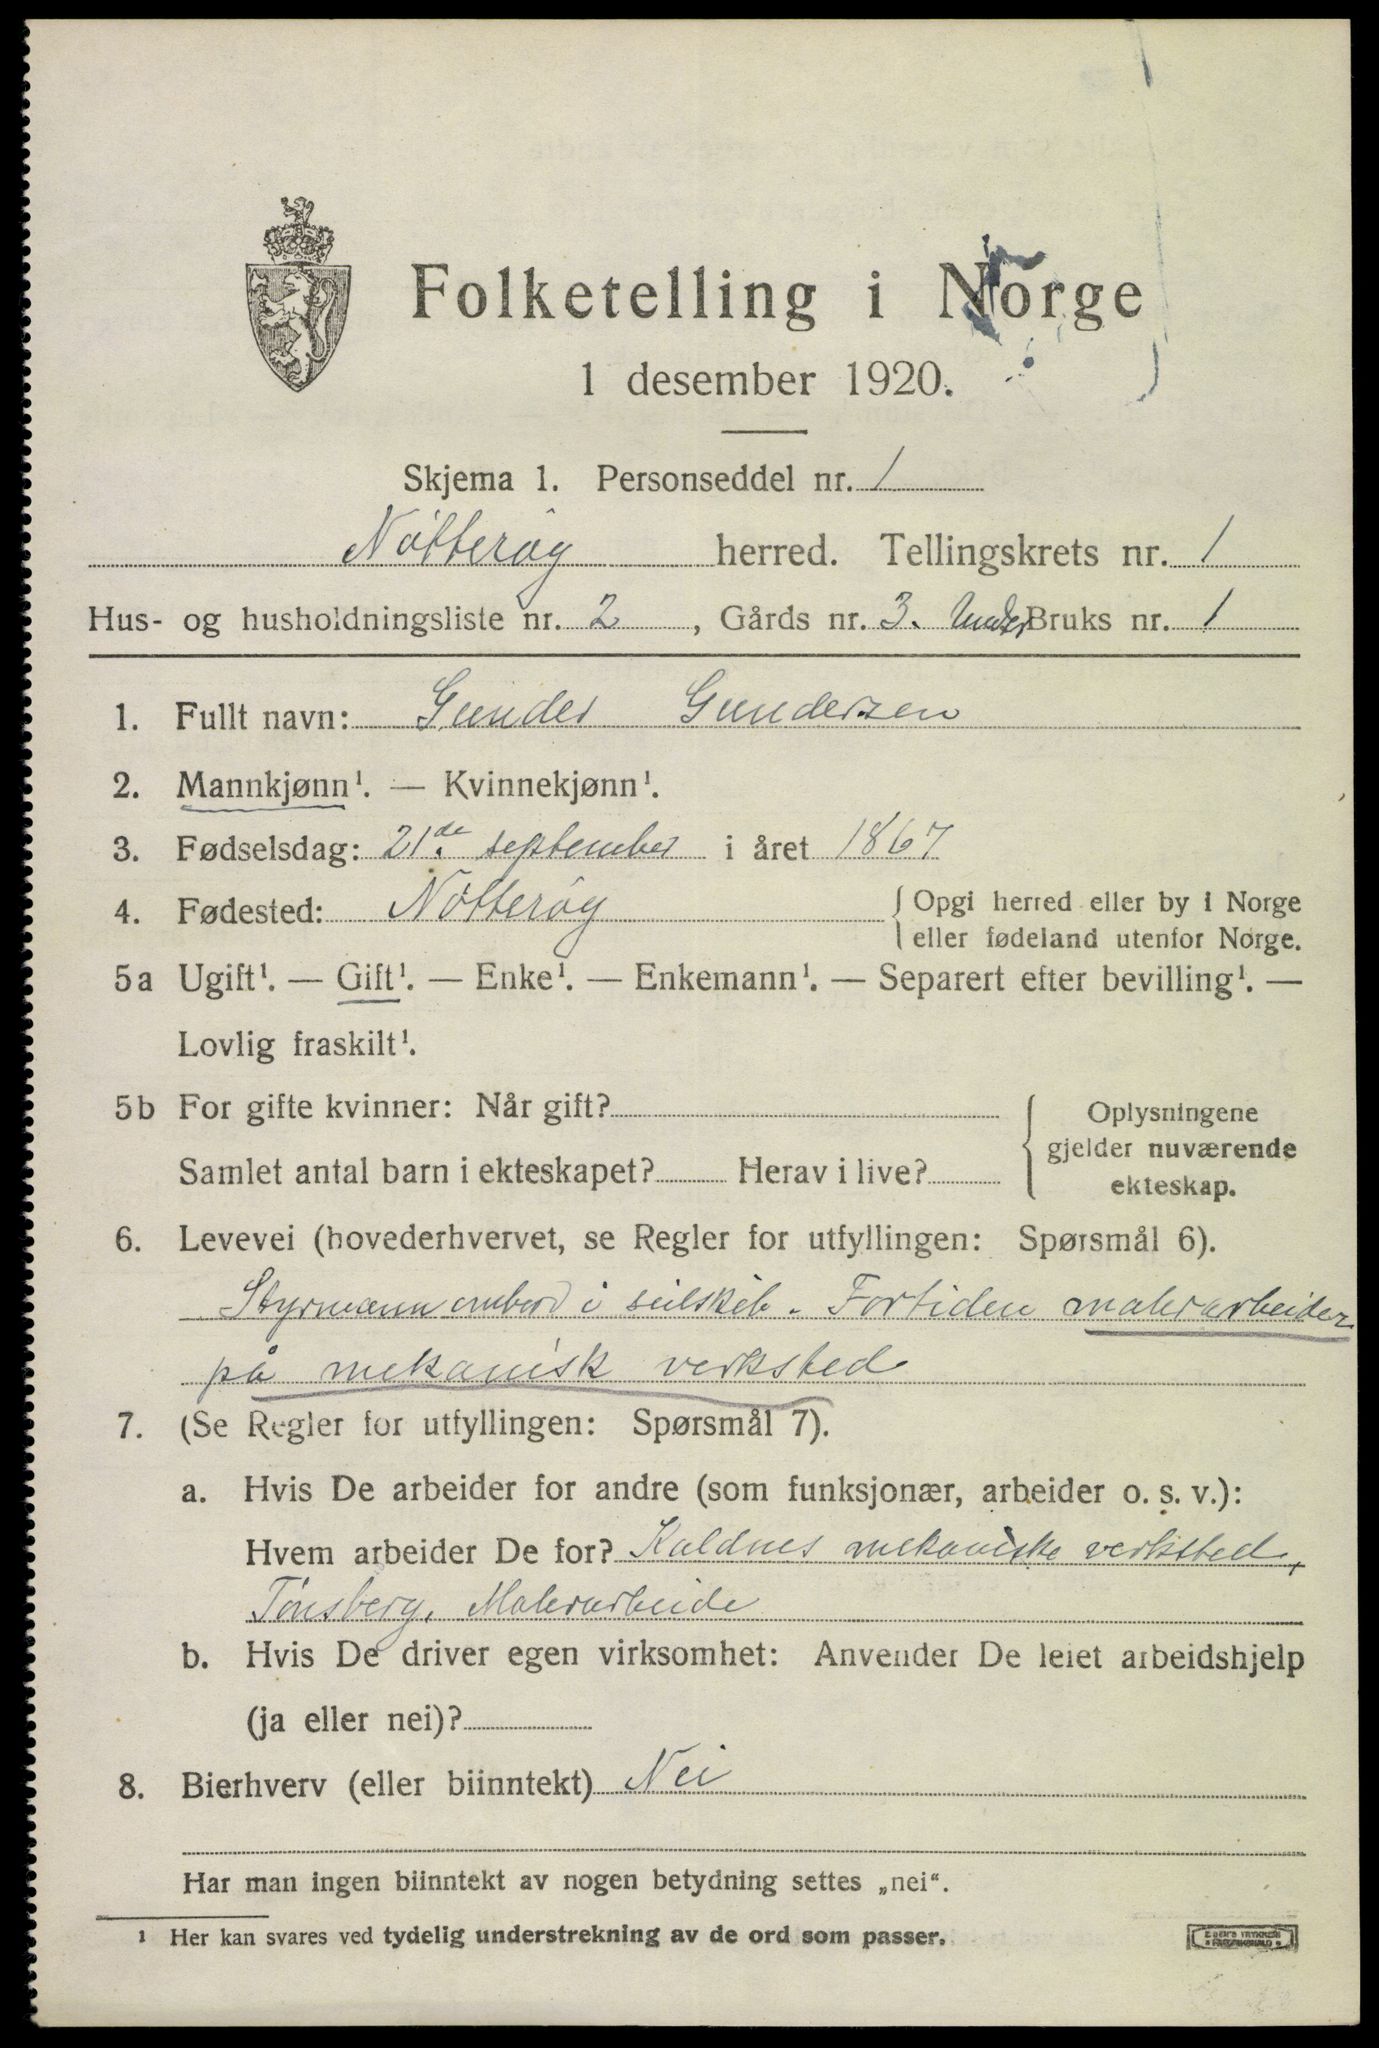 Folketelling i Norge
1 desember 1920.
Skjema 1. Personseddel nr. 1
Nøtterøy herred. Tellingskrets nr. 1
Hus- og husholdningsliste nr. 2, Gårds nr. 3. Under Bruks nr. 1
1. Fullt navn: Gunder Gundersen
2. Mannkjønn¹. — Kvinnekjønn¹.
3. Fødselsdag: 21de september i året 1867
4. Fødested: Nøtterøy { Opgi herred eller by i Norge
eller fødeland utenfor Norge.
5a Ugift¹. — Gift¹. — Enke¹. — Enkemann¹. — Separert efter bevilling¹. —
Lovlig fraskilt¹.
5b For gifte kvinner: Når gift? { Oplysningene
gjelder nuværende
Samlet antal barn i ekteskapet? Herav i live?
ekteskap.
6. Levevei (hovederhvervet, se Regler for utfyllingen: Spørsmål 6).
Styrmann ombord i seilskib. Fortiden malerarbeider
på mekanisk verksted
7. (Se Regler for utfyllingen: Spørsmål 7).
a. Hvis De arbeider for andre (som funksjonær, arbeider o. s. v.):
Hvem arbeider De for? Kaldnes mekaniske verksted,
Tønsberg. Malerarbeide
b. Hvis De driver egen virksomhet: Anvender De leiet arbeidshjelp
(ja eller nei)?
8. Bierhverv (eller biinntekt) Nei
Har man ingen biinntekt av nogen betydning settes „nei“.
¹ Her kan svares ved tydelig understrekning av de ord som passer.